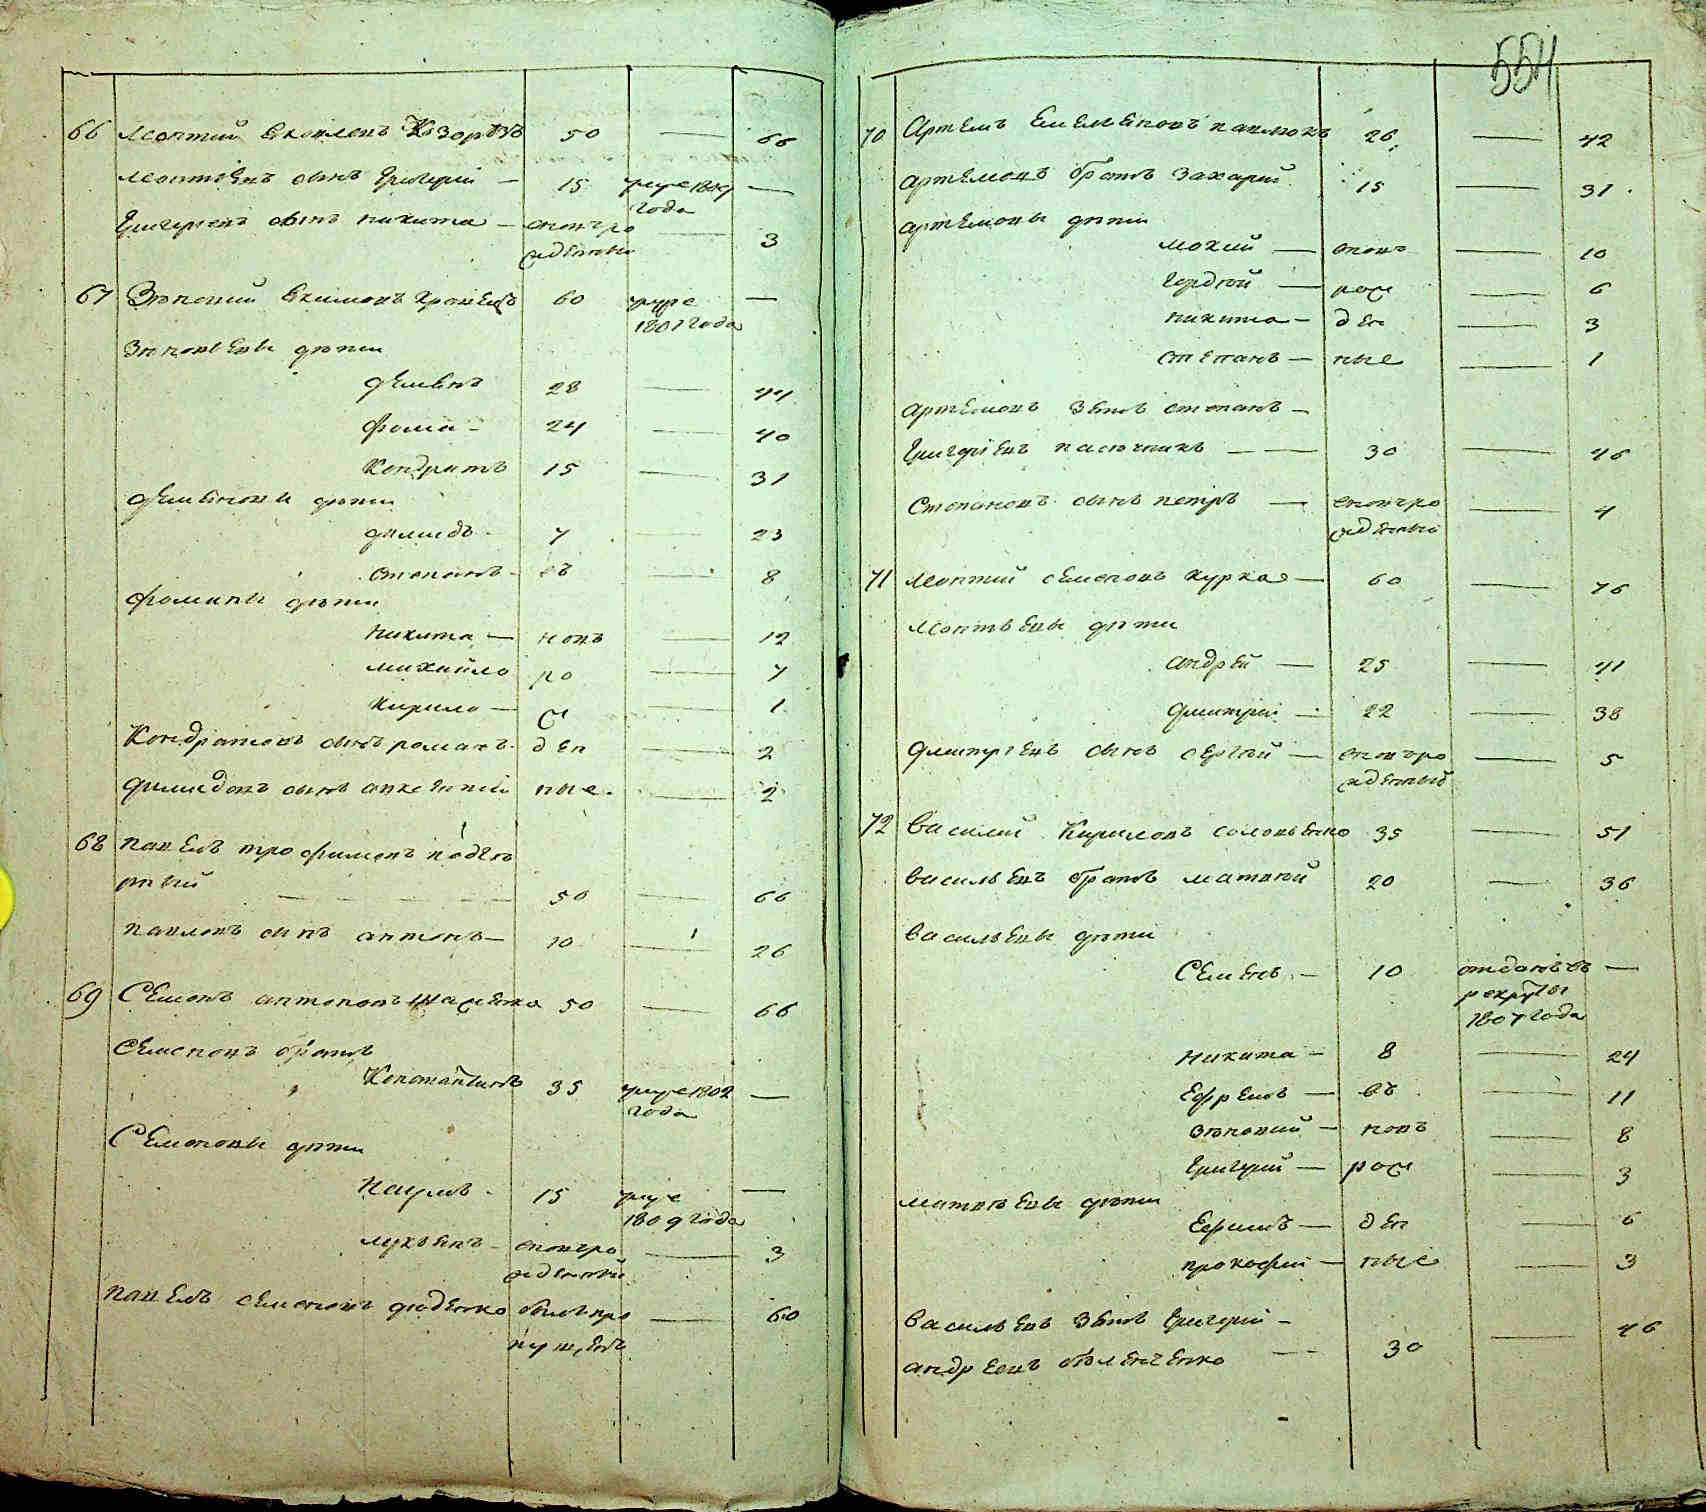 66 Леонтий Яковлевъ 50 — 66
Леонтьевъ сынъ Григорий — 15 умре 1809 —
года
Григорьевъ сынъ никита — вновъро — 3
жденный
67 Зѣновий Якимовъ 60 умре —
1807 года
Зѣновьевы дѣти
демьянъ 28 — 44
фома — 24 — 40
Кондратъ 15 — 31
демьяновы дѣти
диомидъ — 7 — 23
степанъ — въ — 8
фомины дѣти
никита — новъ — 12
михайло ро — 7
кирило — ж — 1
Кондратовъ сынъ романъ — ден — 2
диомидовъ сынъ авксентий ные — 2
68 павелъ трофимовъ
50 — 66
павловъ сынъ антонъ — 10 — 26
69 Семенъ антоновъ 50 — 66
Семеновъ братъ
Констаньтинъ 35 умре 1802 —
года
Семеновы дѣти
наумъ — 15 умре —
1809 года
лукьянъ — вновъро — 3
жденный
павелъ семеновъ дюденко былъ про — 60
пущенъ
554
70 Артемъ Емельяновъ павлюкъ 26 — 42
артемовъ братъ Захарий 15 — 31
артемовы дѣти
мокий — вновъ — 10
гордѣй — рож — 6
никита — ден — 3
степанъ — ные — 1
артемовъ зять степанъ —
Григорьевъ пасечникъ — 30 — 46
Степановъ сынъ петръ — вновъро — 4
жденный
71 Леонтий семеновъ курка — 60 — 76
Леонтьевы дѣти
андрѣй — 25 — 41
дмитрий — 22 — 38
дмитриевъ сынъ сергѣй — вновъро — 5
жденный
72 Василий Кириловъ соловьенко 35 — 51
васильевъ братъ матвѣй 20 — 36
васильевы дѣти
Семенъ — 10 отданъ въ —
рекруты
1807 года
никита — 8 — 24
Ефремъ — въ — 11
зѣновий — новъ — 8
григорий — рож — 3
матвѣевы дѣти
Ефимъ — ден — 6
прокофий — ные — 3
Васильевъ зять григорий —
андреевъ 30 — 46